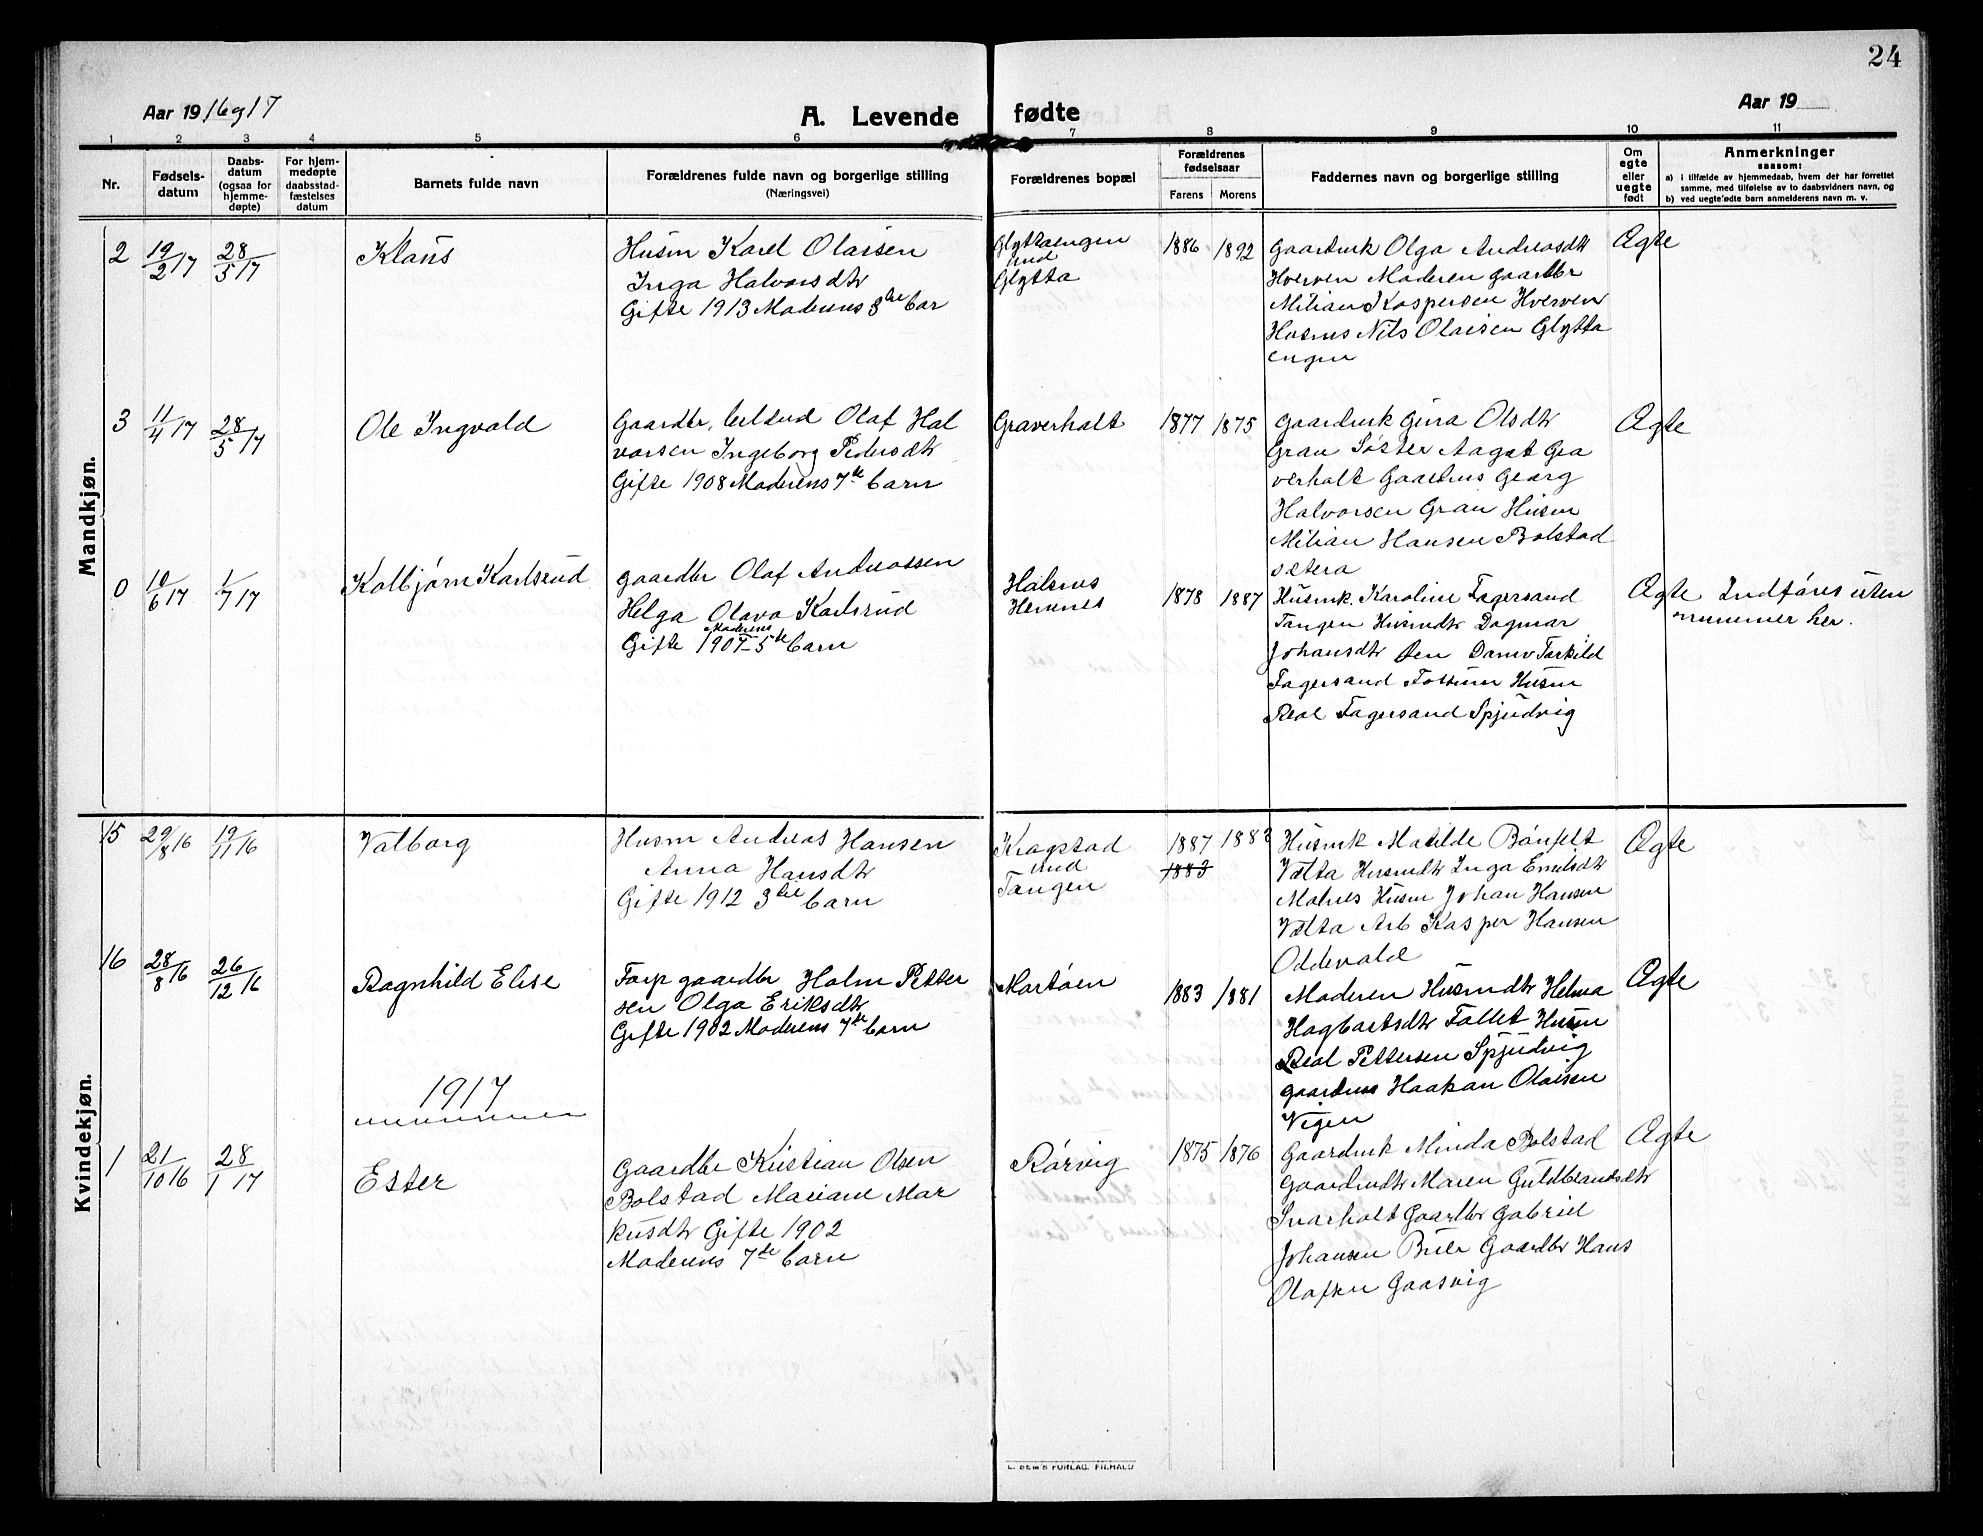 24
Aar 1916 og 17
A. Levende fødte
Aar 19
1 2 3 4 5 6 7 8 9 10 11
Nr.
Fødsels-
datum
Daabs-
datum
(ogsaa for
hjemme-
døpte)
For hjem-
medøpte
daabsstad-
fæstelses
datum
Barnets fulde navn
Forældrenes fulde navn og borgerlige stilling
(Næringsvei)
Forældrenes bopæl
Forældrenes
fødselsaar
Farens Morens
Faddernes navn og borgerlige stilling
Om
egte
eller
uegte
født
Anmerkninger
saasom:
a) i tilfælde av hjemmedaab, hvem det har forrettet
samme, med tilføielse av to daabsvidners navn, og
b) ved uegtefødte barn anmelderens navn m. v.
Mandkjøn.
2 19/2 17 28/5 17
Klaus
Husm Karel Olaisen
Inga Halvorsdtr
Gifte 1913 Moderens 3die barn
Glyttaengen
und
Glytta
1886 1892
Gaardmk Olga Andreasdtr
Hverven Moderen gaardbr
Milian Kaspersen Hverven
Husms Nils Olaisen Glytta
engen
Ægte
3 11/4 17 28/5 17
Ole Ingvald
Gaardbr, Olaf Hal
vorsen Ingeborg Pedersdtr
Gifte 1908 Moderens 7de barn
Graverholt
1877 1875
Gaardmk Gina Olsdtr
Gran Søster Aagot Gra
verholt Gaardms Georg
Halvorsen Gran Husm
Milian Hansen Bolstad
sætera
Ægte
0 10/6 17 1/7 17
Kolbjørn Karlsrud
gaardbr Olaf Andreassen
Helga Olava Karlsrud
Moderens
Gifte 1907 - 5te barn
Halsnes
Hennes
1878 1887
Husmk. Karoline Fagersand
Tangen Husmdtr Dagmar
Johansdtr Øen Torkild
Fagersand Fossum Husm
Real Fagersand Spjudvig
Ægte
Indføres uten
nummer her.
Kvindekjøn.
15 29/8 16 19/11 16
Valborg
Husm Andreas Hansen
Anna Hansdtr
Gifte 1912 3die barn
Kragstad
und
Tangen
1887 1883
1883
Husmk Matilde Bönfelt
Vælta Husmdtr Inga Emilsdtr
Malnes Husm Johan Hansen
Vælta Arb Kasper Hansen
Oddevald
Ægte
16 28/8 16 26/12 16
Ragnhild Elise
Forp gaardbr Holm Petter
sen Olga Eriksdtr
Gifte 1902 Moderens 7de barn
Mortøen
1883 1881
Moderen Husmdtr Helma
Hagbartsdtr Follet Husm
Real Pettersen Spjudvig
gaardms Haakan Olaisen
Vigen
Ægte
1917
1 21/10 16 28/1 17
Ester
Gaardbr Kristian Olsen
Bolstad Mariane Mar
kusdtr Gifte 1902
Moderens 7de barn
Rørvig
1875 1876
Gaardmk Minda Bolstad
Gaardmdtr Maren Guldbrandsdtr
Svarholt Gaardbr Gabriel
Johansen Buer Gaardbr Hans
Olafsen Gaasvig
Ægte
E. SEM'S FORLAG, FR.HALD